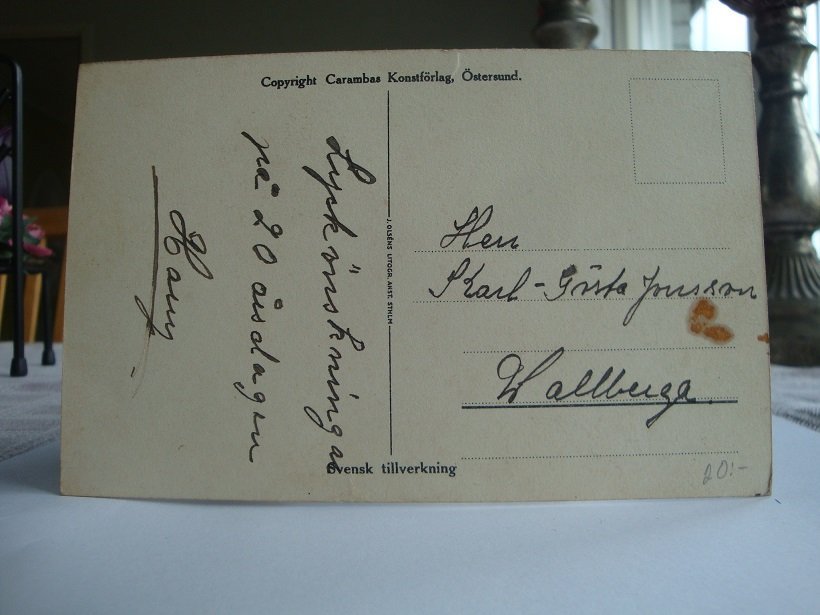 Copyright Carambas Konstförlag, Östersund.
Lyckönskningar
på 20 årsdagen
J. OLSÉNS LITOGR. ANST. STHLM
Herr
Karl-Gösta Jonsson
Wallberga.
Svensk tillverkning
20:-